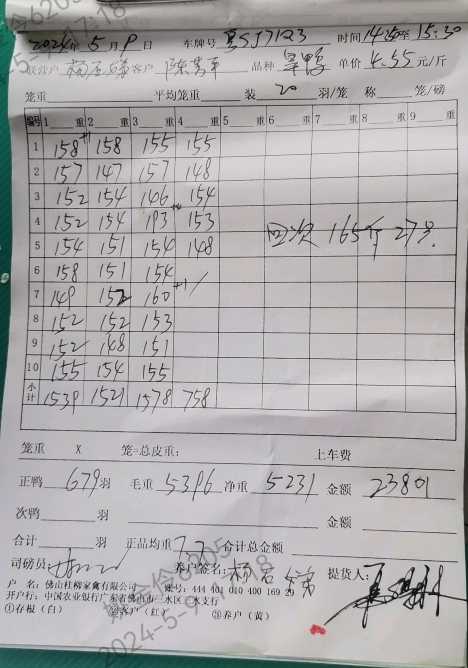 2024年5月9日 车牌号 时间 14:50至15:30
客户 品种 单价 4.55元/斤
笼重 平均笼重 装 20 羽/笼 称 笼/磅
编号 1 重 2 重 3 重 4 重 5 重 6 重 7 重 8 重 9 重
1 158 158 155 155
2 157 147 157 148
3 152 154 146 154
4 152 154 193 153
5 154 151 154 148
回次 165斤 27只
6 158 151 154
7 149 152 160 +1
8 152 152 153
9 152 148 151
10 155 154 155
小计 1539 1521 1578 758
笼重 X 笼=总皮重: 上车费
正鸭 679 羽 毛重 5396 净重 5231 金额 23801
次鸭 羽 金额
合计 羽 正品均重 7.7 合计总金额
司磅员 养户签名: 提货人:
户 名: 佛山桂柳家禽有限公司 账号: 444 401 010 400 169 29
开户行: 中国农业银行广东省佛山市三水区 支行
①存根(白) ②客户(红) ③养户(黄)
2024-5-9